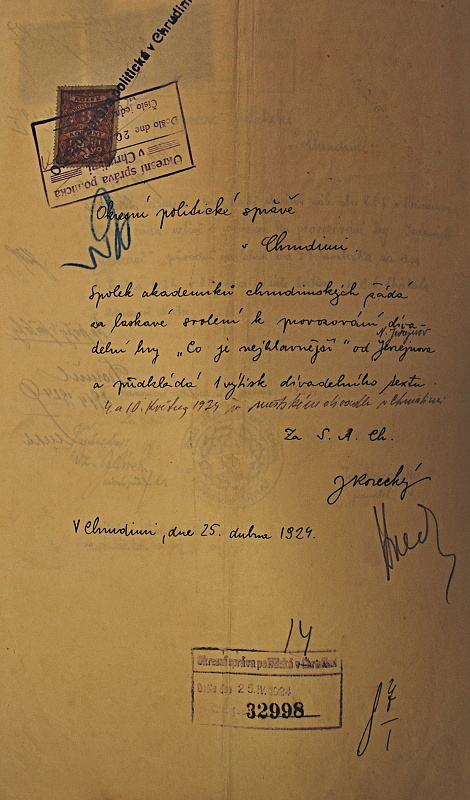 politická v Chrudimi
KOLEK
Okresní správa politická
v Chrudimi
Došlo dne 20
Číslo jedn.
Okresní politické správě
v Chrudimi.
Spolek akademiků chrudimských žádá
za laskavé svolení k provozování diva-
N. Jevrejnov
delní hry „Co je nejhlavnější" od Jevrejnova
a předkládá 1 výtisk divadelního textu.
a 10. května 1924 v městském divadle v Chrudimi
Za S. A. Ch.
JKorecký
V Chrudimi, dne 25. dubna 1924.
14
Okresní správa politická v Chrudimi
Došlo dne 25.IV.1924
32998